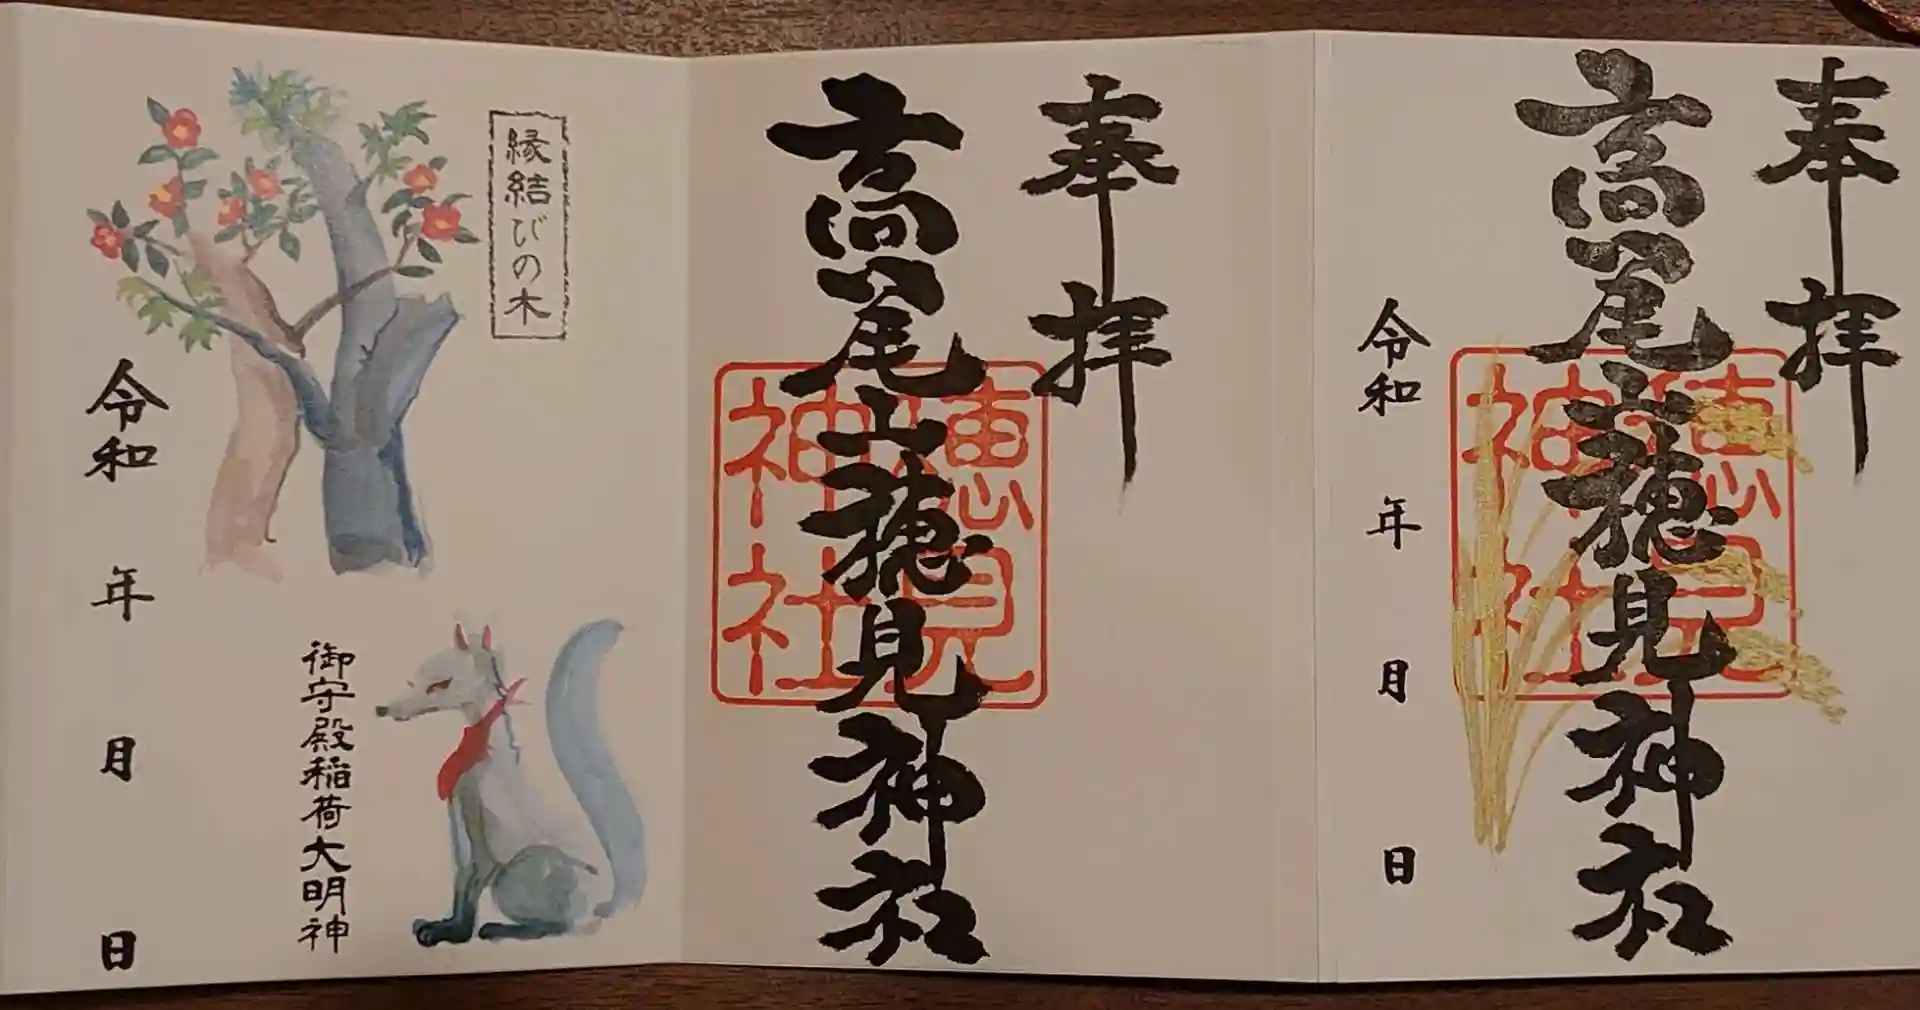 奉拝
高尾山穂見神社
穂見神社
令和 年 月 日
奉拝
高尾山穂見神社
穂見神社
縁結びの木
御守殿稲荷大明神
令和 年 月 日